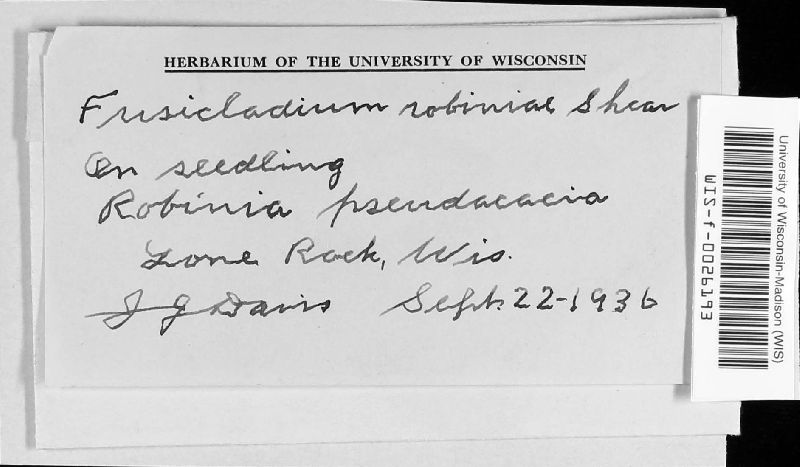 HERBARIUM OF THE UNIVERSITY OF WISCONSIN
Fusicladium robiniae Shear
On seedling
Robinia pseudacacia
Lone Rock, Wis.
J J Davis Sept. 22-1936
University of Wisconsin-Madison (WIS)
WIS-f-0029193